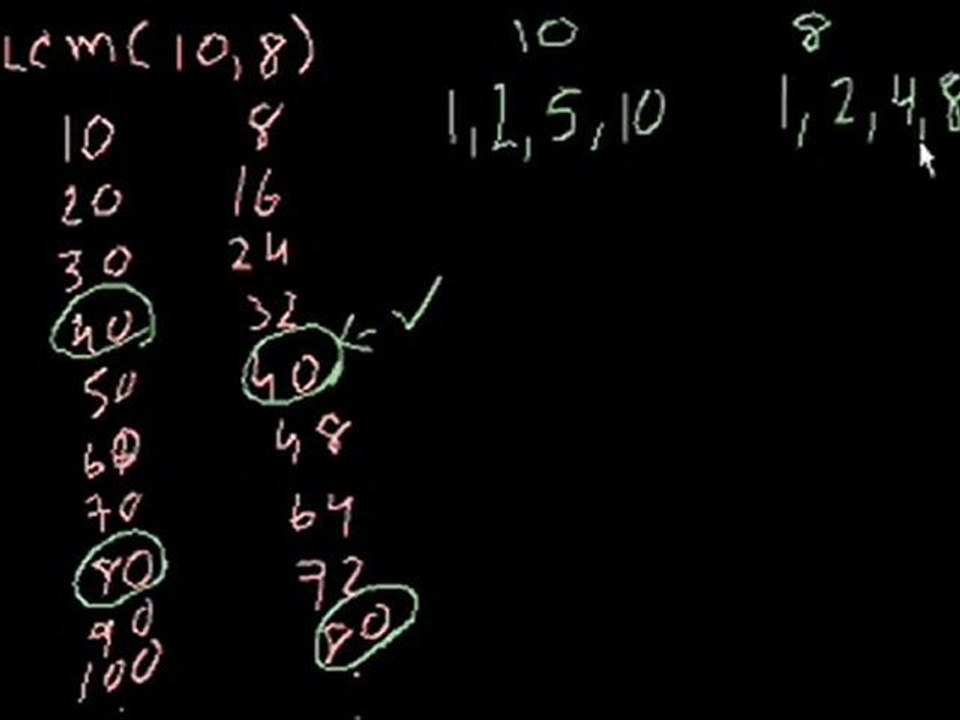 LCM(10,8)
10
20
30
40
50
60
70
80
90
100
8
16
24
32
40
48
64
72
80
10
1,2,5,10
8
1,2,4,8